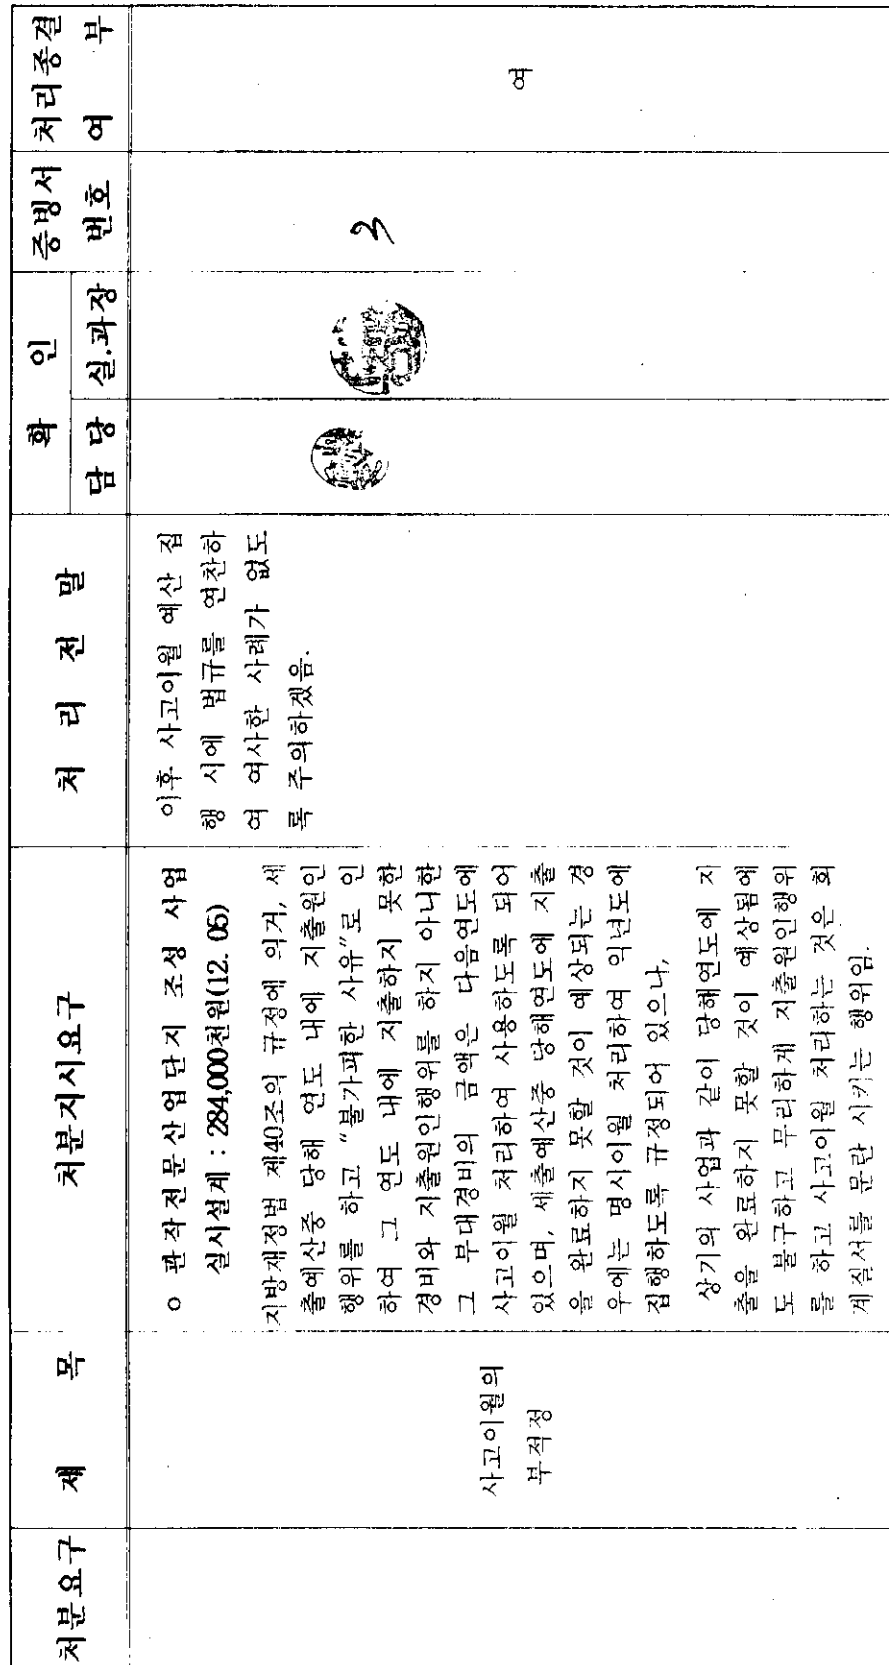 처분요구
제 목
처분지시요구
처 리 전 말
확 인
담 당
실.과장
증빙서
번호
처리종결
여 부
사고이월의
부적정
o 관작전문산업단지 조성 사업
실시설계 : 284,000천원(12. 05)
지방재정법 제40조의 규정에 의거, 세
출예산중 당해 연도 내에 지출원인
행위를 하고 “불가피한 사유”로 인
하여 그 연도 내에 지출하지 못한
경비와 지출원인행위를 하지 아니한
그 부대경비의 금액은 다음연도에
사고이월 처리하여 사용하도록 되어
있으며, 세출예산중 당해연도에 지출
을 완료하지 못할 것이 예상되는 경
우에는 명시이월 처리하여 익년도에
집행하도록 규정되어 있으나,
상기의 사업과 같이 당해연도에 지
출을 완료하지 못할 것이 예상됨에
도 불구하고 무리하게 지출원인행위
를 하고 사고이월 처리하는 것은 회
계질서를 문란 시키는 행위임.
이후 사고이월 예산 집
행 시에 법규를 연찬하
여 여사한 사례가 없도
록 주의하겠음.
3
여